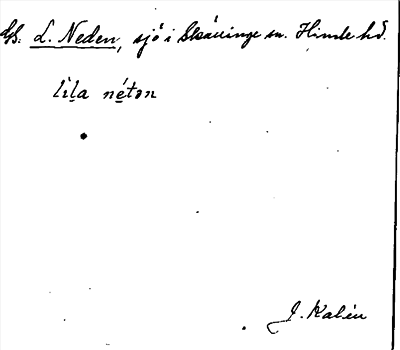 L. Neden, sjö i Skällinge sn. Himle hd.
lila néton
J. Kalén